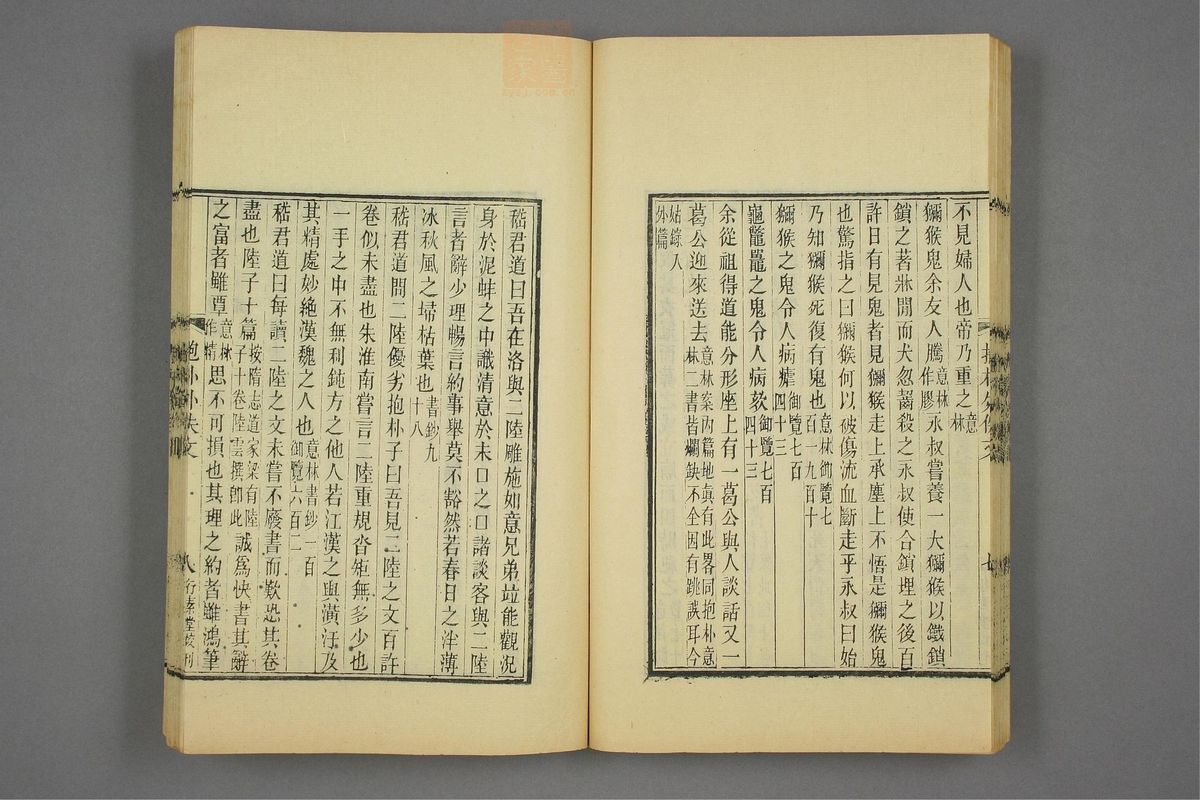 不見婦人也帝乃重之意林
獼猴鬼余友人騰意林作膠永叔嘗養一大獼猴以鐵鎖
鎖之著牀閒而犬忽齧殺之永叔使合鎖埋之後百
許日有見鬼者見獼猴走上承塵上不悟是獼猴鬼
也驚指之曰獼猴何以破傷流血斷走乎永叔曰始
乃知獼猴死復有鬼也意林御覽七百一九百十
獼猴之鬼令人病瘧御覽七百四十三
龜鼈鼉之鬼令人病欬御覽七百四十三
余從祖得道能分形座上有一葛公與人談話又一
葛公迎來送去意林案內篇地眞有此畧同抱朴意林二書皆爛缺不全因有跳誤耳今
姑錄入外篇
嵇君道曰吾在洛與二陸雕施如意兄弟竝能觀況
身於泥蚌之中識清意於未口之口諸談客與二陸
言者辭少理暢言約事舉莫不豁然若春日之泮薄
冰秋風之埽枯葉也書鈔九十八
嵇君道問二陸優劣抱朴子曰吾見二陸之文百許
卷似未盡也朱淮南嘗言二陸重規沓矩無多少也
一手之中不無利鈍方之他人若江漢之與潢汙及
其精處妙絶漢魏之人也意林書鈔一百御覽六百二
嵇君道曰每讀二陸之文未嘗不廢書而歎恐其卷
盡也陸子十篇按隋志道家梁有陸子十卷陸雲撰卽此誠爲快書其辭
之富者雖覃意林作精思不可損也其理之約者雖鴻筆
抱朴外佚文
八
行素堂校刊
七